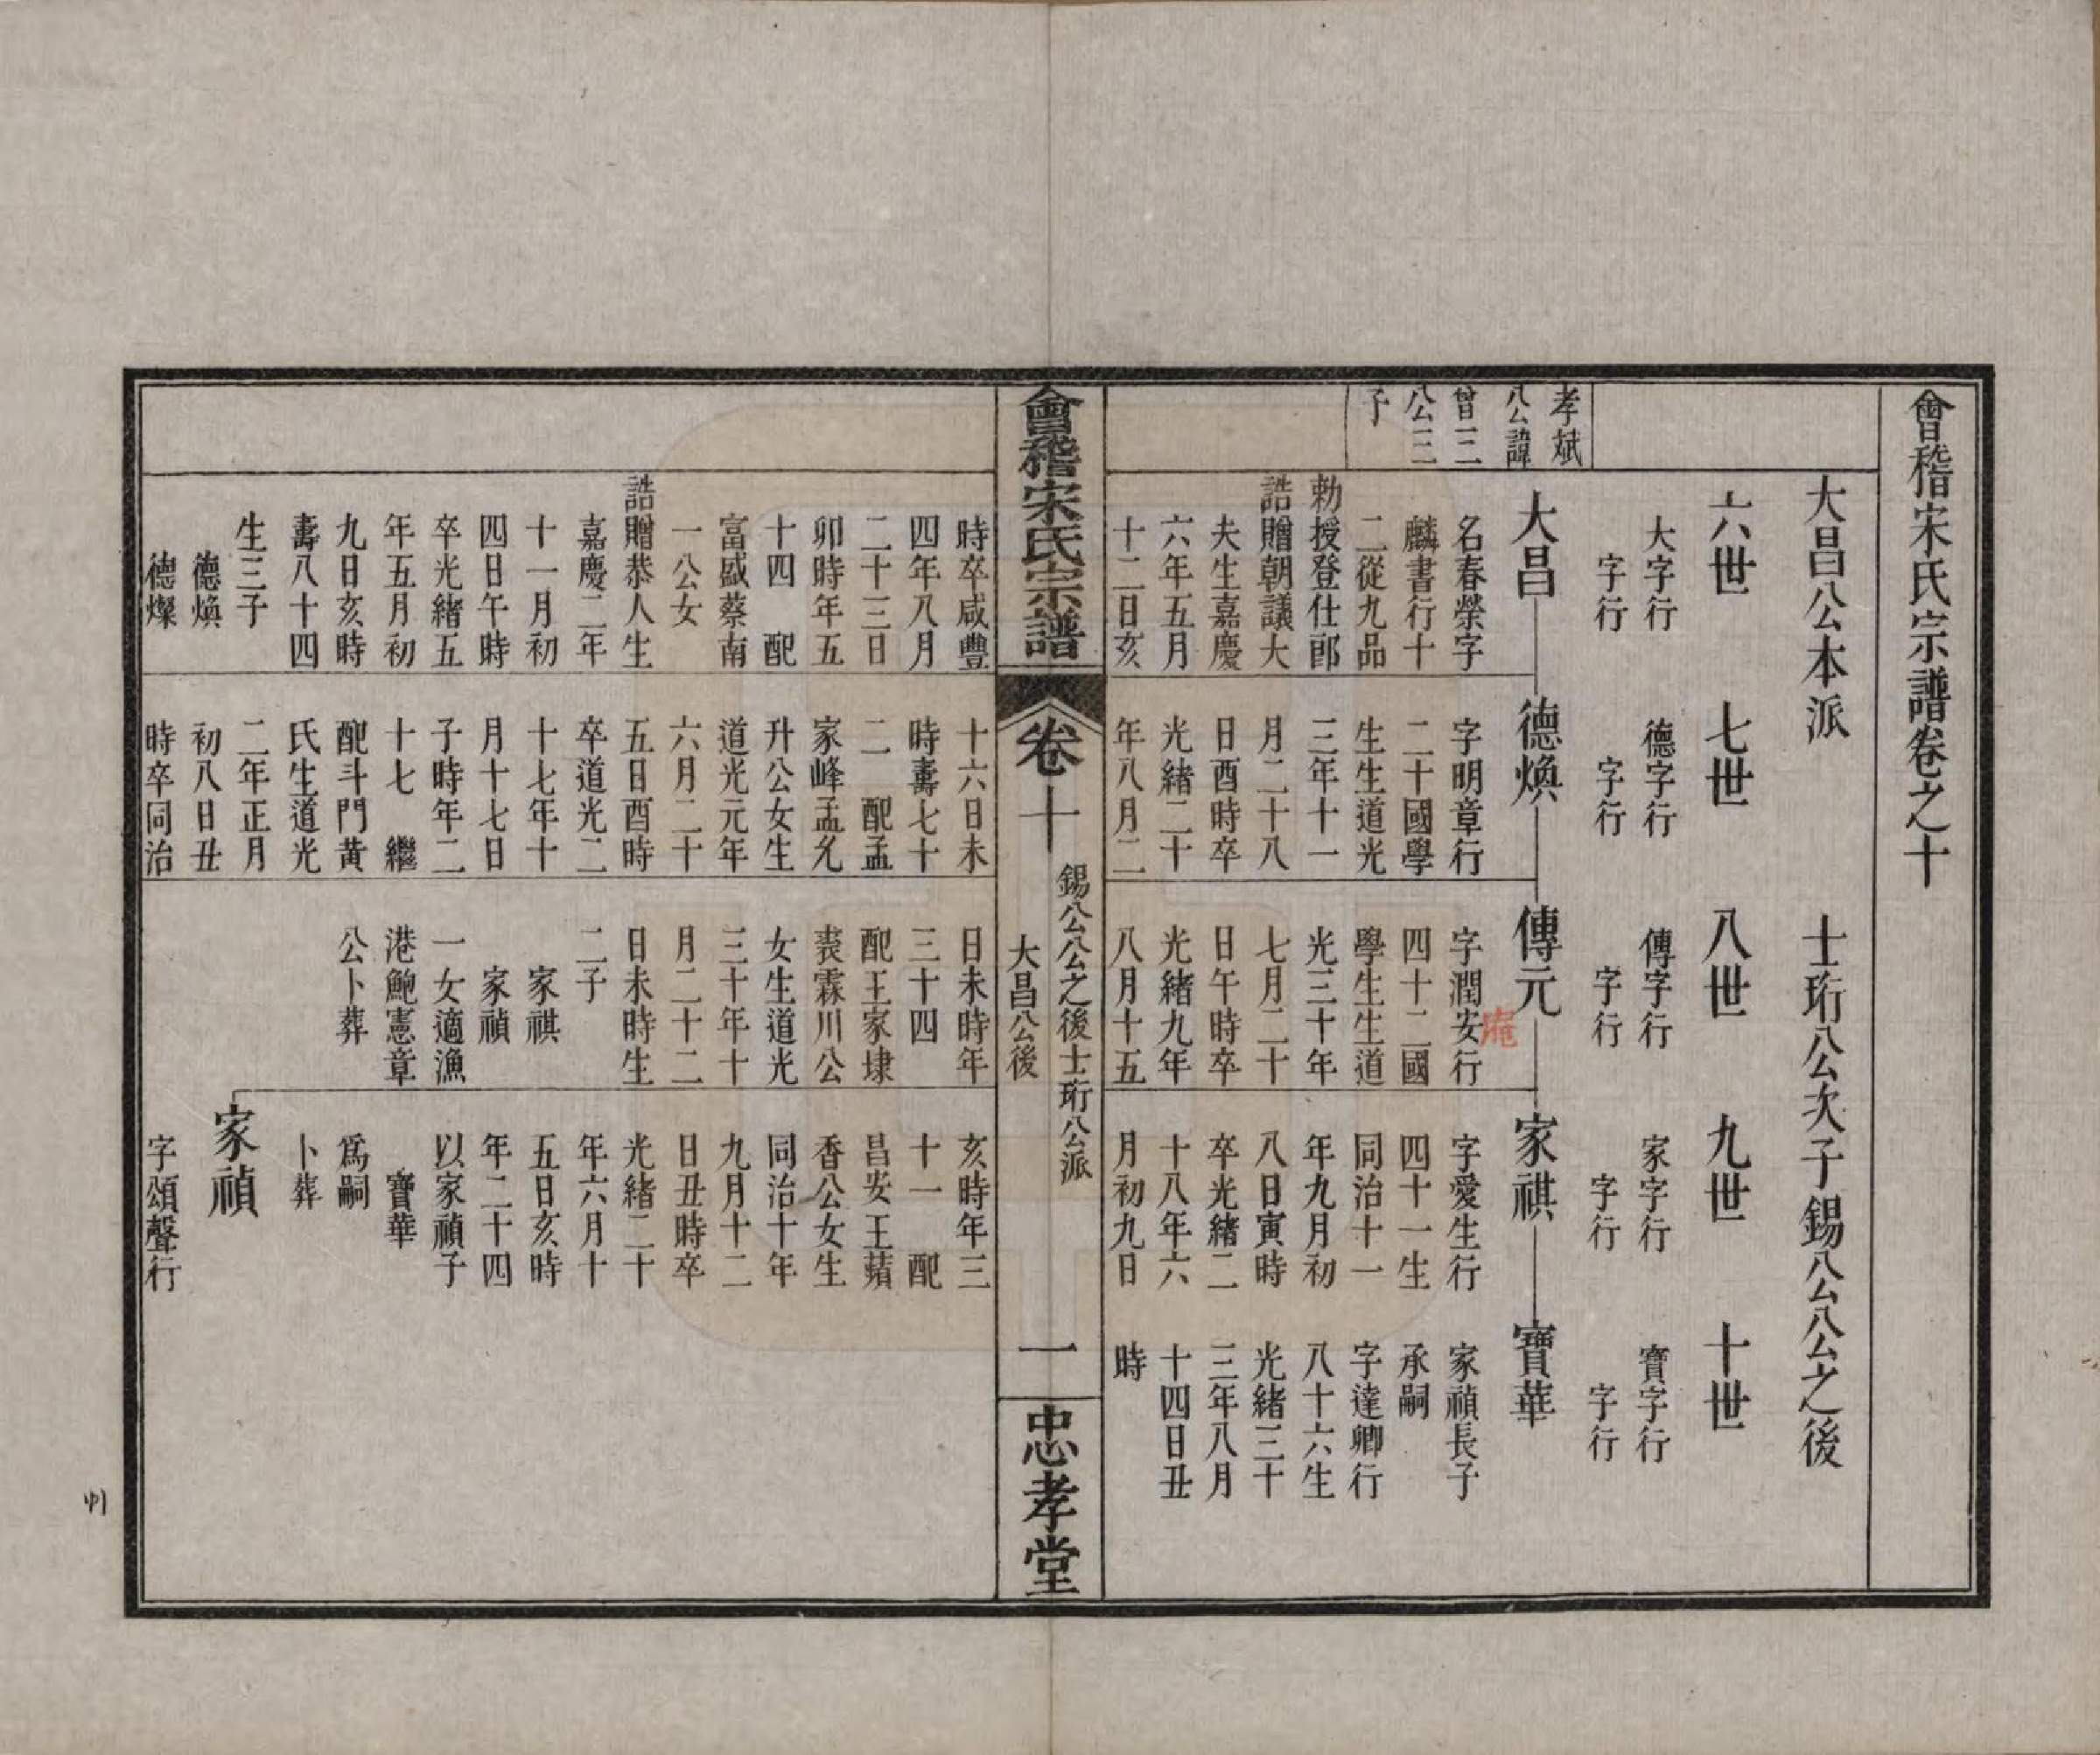 會稽宋氏宗譜卷之十
大昌公本派　士珩公次子錫八公八公之後
六世　七世　八世　九世　十世
大字行　德字行　傳字行　家字行　寶字行
字行　字行　字行　字行　字行
孝斌
八公諱
曾二
公三
子
大昌
名春榮字
麟書行十
二從九品
勅授登仕郎
誥贈朝議大
夫生嘉慶
六年五月
十二日亥
時卒咸豐
四年八月
二十三日
卯時年五
十四　配
富盛蔡南
一公女
誥贈恭人生
嘉慶二年
十一月初
四日午時
卒光緒五
年五月初
九日亥時
壽八十四
生三子
德煥
德燦
德煥
字明章行
二十國學
生生道光
三年十一
月二十八
日酉時卒
光緒二十
年八月二
十六日未
時壽七十
二　配孟
家峰孟允
升公女生
道光元年
六月二十
五日酉時
卒道光二
十七年十
月十七日
子時年二
十七　繼
配斗門黃
氏生道光
二年正月
初八日丑
時卒同治
傳元
字潤安行
庵
四十二國
學生生道
光三十年
七月二十
日午時卒
光緒九年
八月十五
日未時年
三十四
配王家埭
裘霖川公
女生道光
三十年十
月二十二
日未時生
二子
家祺
家禎
一女適漁
港鮑憲章
公卜葬
家祺
字愛生行
四十一生
同治十一
年九月初
八日寅時
卒光緒二
十八年六
月初九日
亥時年三
十一　配
昌安王蘋
香公女生
同治十年
九月十二
日丑時卒
光緒二十
年六月十
五日亥時
年二十四
以家禎子
寶華
為嗣
卜葬
家禎
字頌聲行
寶華
家禎長子
承嗣
字達卿行
八十六生
光緒三十
三年八月
十四日丑
時
會稽宋氏宗譜
卷十
錫八公公之後士珩公派
大昌公後
一
忠孝堂